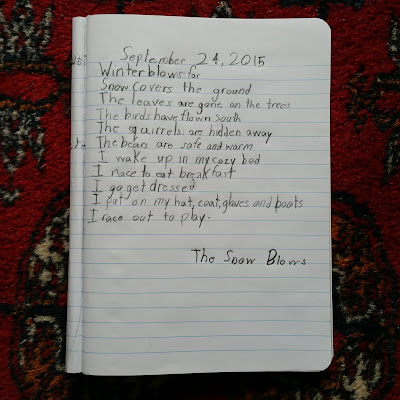 September 24, 2015
Winter blows far
Snow covers the ground
The leaves are gone on the trees
The birds have flown South
The squirrels are hidden away
The bears are safe and warm
I wake up in my cozy bed
I race to eat breakfast
I go get dressed
I put on my hat, coat, gloves and boots
I race out to play.
The Snow Blows